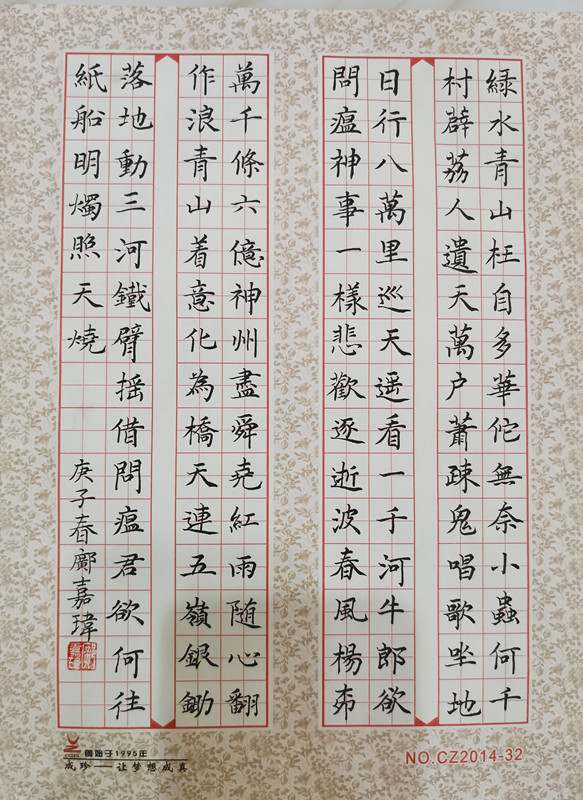 緑水青山枉自多華佗無奈小蟲何千
村薜荔人遺矢萬户蕭疎鬼唱歌坐地
日行八萬里巡天遥看一千河牛郎欲
問瘟神事一樣悲歡逐逝波春風楊柳
萬千條六億神州盡舜尭紅雨随心翻
作浪青山着意化為橋天連五嶺銀鋤
落地動三河鐵臂揺借問瘟君欲何往
紙船明燭照天燒
庚子春鄺嘉瑋
始于1995年
成珍——让梦想成真
NO.CZ2014-32